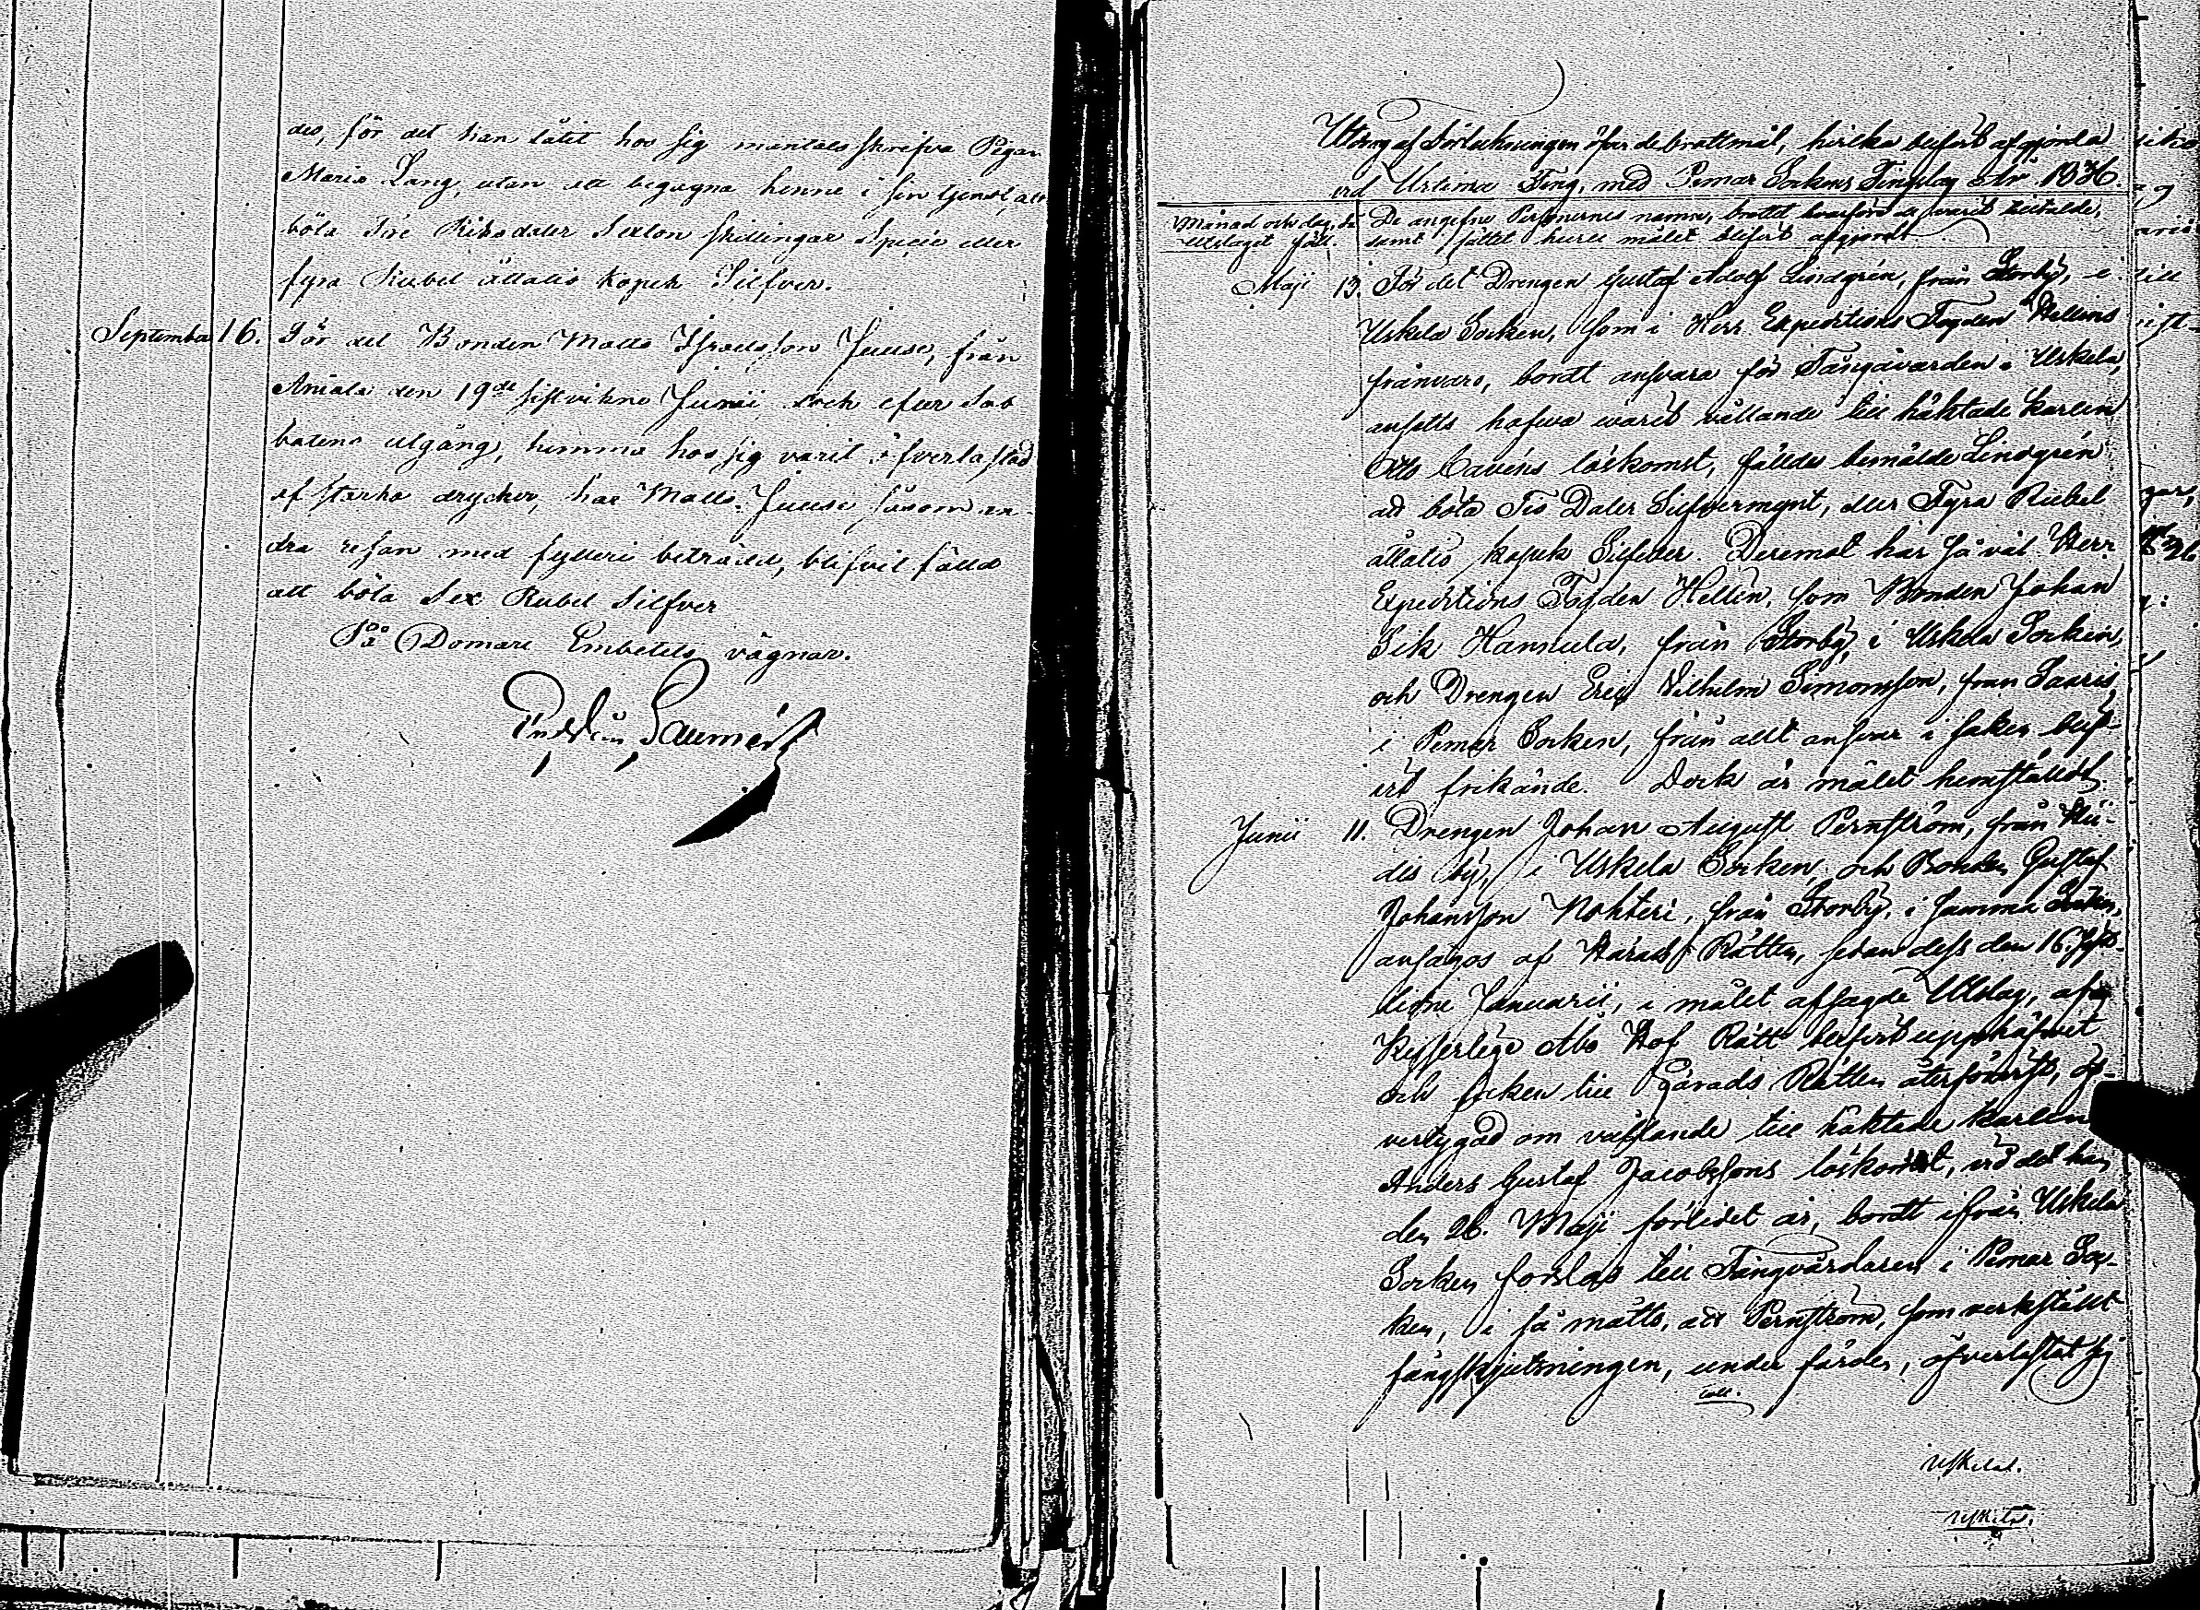 des, för det han låtit hos sig mantalsskrifva Pigan
Maria Lang, utan att begagna henne i sin tjenst, att
böta Tre Riksdaler Sexton skillingar Specie eller
fyra Rubel åttatio Kopek Silfver.
September 16. För det Bonden Matts Israelsson Juuse, från
Aniala den 19de sistvikne Junii, dock efter Sab
batens utgång, hemma hos sig varit öfverlastad
af starka drycker, har Matts Juuse såsom an-
dra resan med fylleri beträdd, blifvit fälld
att böta Sex Rubel Silfver
På Domare Embetets vägnar.
Utdrag af Förteckningen öfver de brottmål, hvilka blifvit afgjorda
vid Urtima Ting, med Pemar Sockens Tingslag År 1836.
Månad och dag, då De angifne Personernes namn, brottet hvarföre de varit tilltalde,
utslaget fäll. samt sättet huru målet blifvit afgjordt
Maji 13. För det Drengen Gustaf Adolf Lindgrén, från Storby, i
Uskela Socken, som i Herr Expeditions Fogden Hellens
frånvaro, bordt ansvara för Fångavården i Uskela,
ansetts hafva varit vållande till häktade Karlen
Otto Cavéns löskomst, fälldes bemälde Lindgrén
att böta Tio Daler Silfvermynt, eller Fyra Rubel
åttatio kopek Silfver. Deremot har så väl Herr
Expeditions Fogden Hellén, som Bonden Johan
Erik Hannula, från Storby, i Uskela Socken,
och Drengen Eric Wilhelm Simonsson, från Saaris
i Pemar Socken, från allt ansvar i saken blif-
vit frikände. Dock är målet hemstäldt.
Junii 11. Drengen Johan August Pernström, från Hii-
dis by, i Uskela Socken och Bonden Gustaf
Johansson Nohteri, från Storby, i samma Socken,
ansågos af Härads Rätten, sedan dess den 16. sist-
lidne Januarii, i målet afsagde Utslag, af
Kejserlige Åbo Hof Rätt blifvit upphäfvet
och saken till Härads Rätten återförvist, öf-
vertygad om vållande till häktade karlen
Anders Gustaf Jacobssons löskomst, vid det han
den 26. Maji förledet år, bordt ifrån Uskela
Socken forslas till Fångvårdaren i Pemar Soc-
ken, i så måtto, att Pernström, som verkställt
fångskjutsningen, under färden, öfverlastat sig
Uskela.
Uskela.